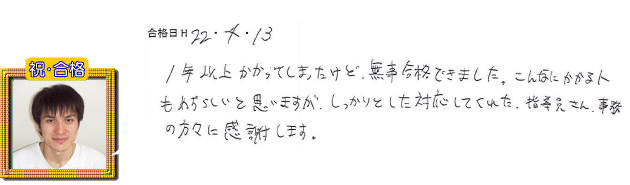 合格日H 22・4・13
祝・合格
1年以上かかってしまったけど、無事合格できました。こんなにかかる人
もめずらしいと思いますが、しっかりとした対応してくれた、指導員さん、事務
の方々に感謝します。